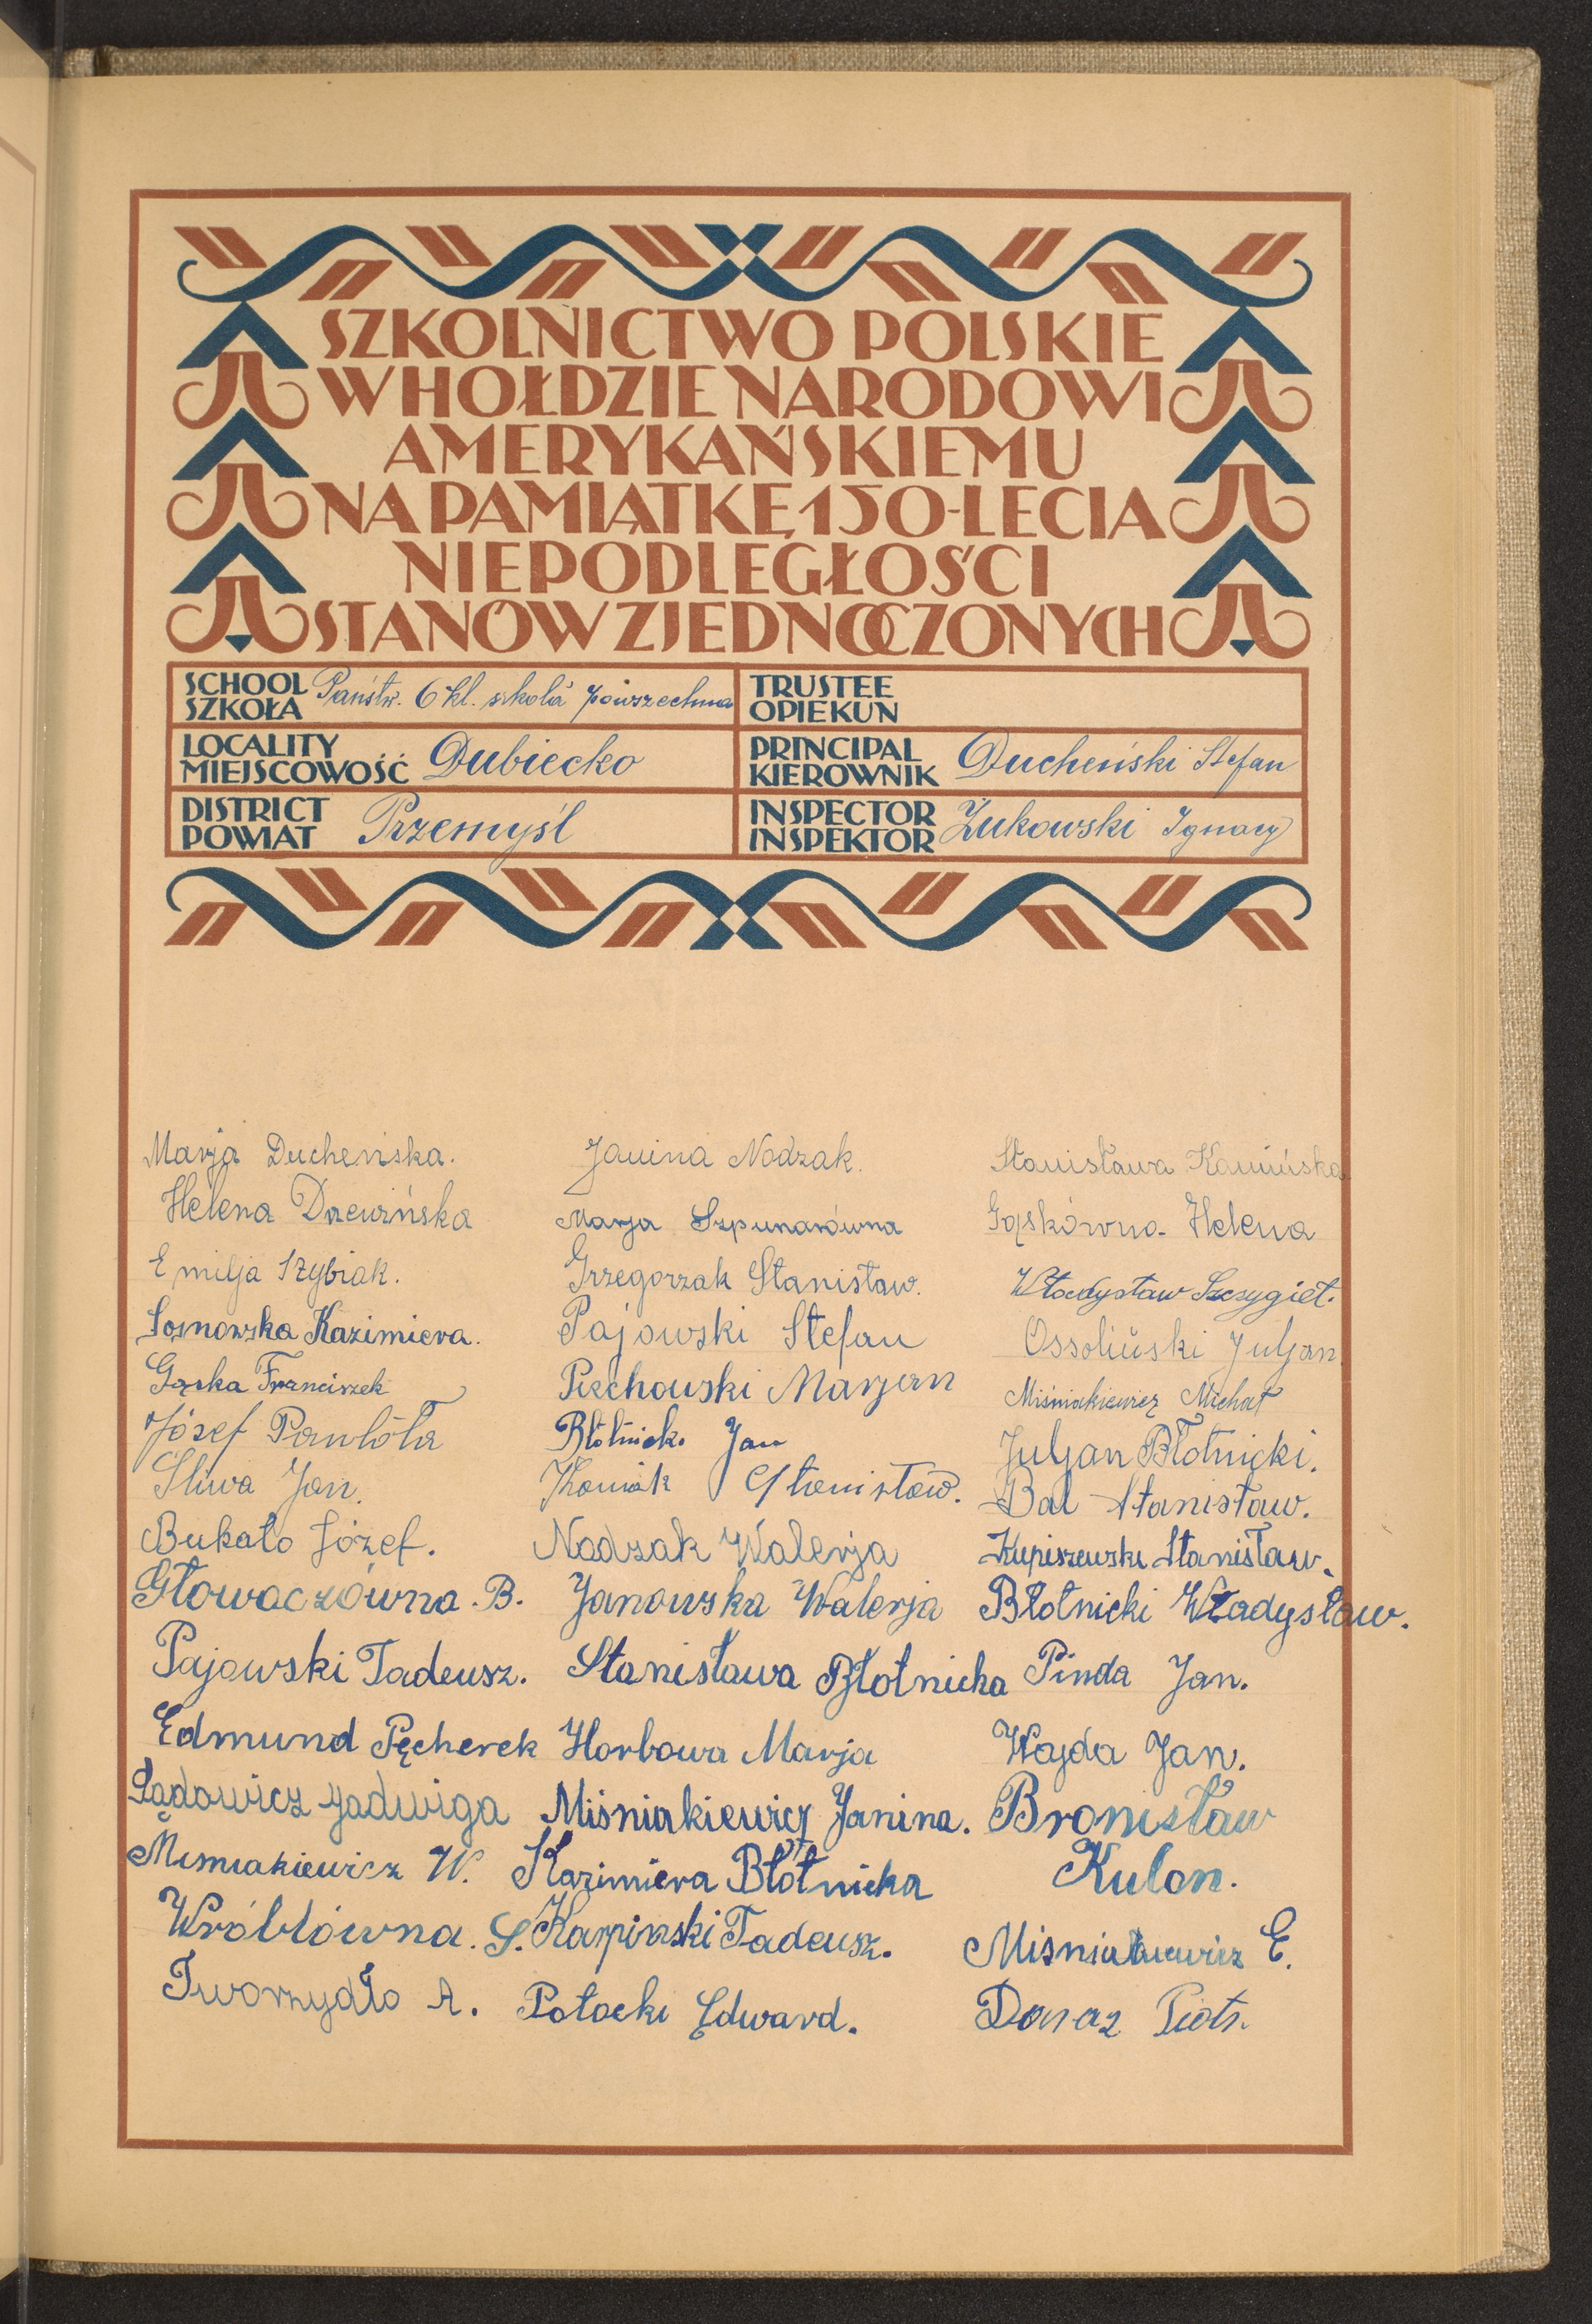 SZKOLNICTWO POLSKIE
W HOŁDZIE NARODOWI
AMERYKAŃSKIEMU
NA PAMIĄTKĘ 150-LECIA
NIEPODLEGŁOŚCI
STANÓW ZJEDNOCZONYCH
SCHOOL
SZKOŁA
Państw. 6 kl. szkoła powszechna
TRUSTEE
OPIEKUN
LOCALITY
MIEJSCOWOŚĆ
Dubiecko
PRINCIPAL
KIEROWNIK
Ducheński Stefan
DISTRICT
POWIAT
Przemyśl
INSPECTOR
INSPEKTOR
Żukowski Ignacy
Marja Ducheńska.
Helena Drewińska
Emilja Szybiak.
Sosnowska Kazimiera.
Gąska Franciszek
Józef Pawłóła
Śliwa Jan.
Bukało Józef.
Głowaczówna. B.
Pajowski Tadeusz.
Edmund Pęcherek
Lądowicz Jadwiga
Miśniakiewicz W.
Wróblówna. S.
Tworzydło A.
Janina Nodzak.
Marja Szpunarówna
Grzegorzak Stanisław.
Pajowski Stefan
Piechowski Marjan
Błótnick. Jan
Stanisław.
Nadzak Walerja
Janowska Walerja
Stanisława Błotnicka
Horbowa Marja
Miśniakiewicz Janina.
Kazimiera Błotnicka
Karpinski Tadeusz.
Potocki Edward.
Stanisława Kamińska
Gąskówna Helena
Władysław Szczygieł.
Ossoliński Juljan
Miśniakiewicz Michał
Juljan Błotnicki.
Bal Stanisław.
Kupiszewski Stanisław.
Błotnicki Władysław.
Pinda Jan.
Wajda Jan.
Bronisław
Kulon.
Miśniakiewicz E.
Piotr.